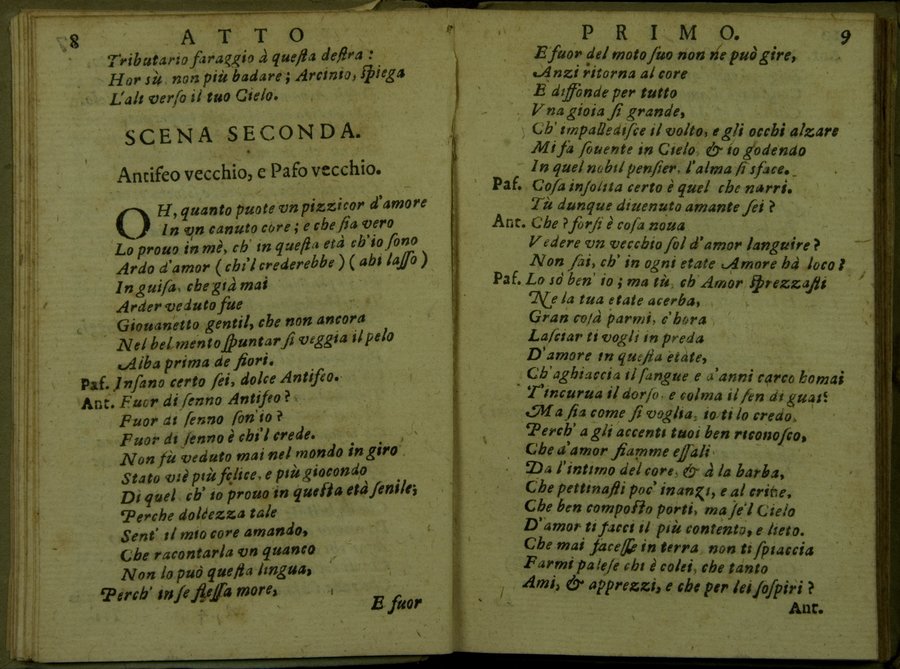 8 ATTO
Tributario faraggio à questa destra:
Hor sù, non più badare; Arcinio, spiega
L'ali verso il tuo Cielo.
SCENA SECONDA.
Antifeo vecchio, e Pafo vecchio.
OH, quanto puote vn pizzicor d'amore
In vn canuto core; e che sia vero
Lo prouo in mè, ch' in questa età ch'io sono
Ardo d'amor (chi'l crederebbe) (ahi lasso)
In guisa, che già mai
Arder veduto fue
Giouanetto gentil, che non ancora
Nel bel mento spuntar si veggia il pelo
Alba prima de fiori.
Paf. Insano certo sei, dolce Antifeo.
Ant. Fuor di senno Antifeo?
Fuor di senno son'io?
Fuor di senno è chi'l crede.
Non fù veduto mai nel mondo in giro
Stato viè più felice, e più giocondo
Di quel, ch' io prouo in questa età senile;
Perche dolcezza tale
Sent' il mio core amando,
Che racontarla vn quanco
Non lo può questa lingua,
Perch' in se stessa more,
E fuor
PRIMO. 9
E fuor del moto suo non ne può gire,
Anzi ritorna al core
E diffonde per tutto
Vna gioia si grande,
Ch' impalledisce il volto, e gli occhi alzare
Mi fa souente in Cielo, & io godendo
In quel nobil pensier, l'alma si sface.
Paf. Cosa insolita certo è quel che narri.
Tù dunque diuenuto amante sei?
Ant. Che? forsi è cosa noua
Vedere vn vecchio sol d'amor languire?
Non sai, ch' in ogni etate Amore hà loco?
Paf. Lo sò ben' io; ma tù, ch' Amor sprezzasti
Ne la tua etate acerba,
Gran cosà parmi, c'hora
Lasciar ti vogli in preda
D'amore in questa etate,
Ch'aghiaccia il sangue e d'anni carco homai
T'incurua il dorso, e colma il sen di guai?
Ma sia come si voglia, io ti lo credo,
Perch' a gli accenti tuoi ben riconosco,
Che d'amor fiamme essali
Da l'intimo del core, & à la barba,
Che pettinasti poc' inanzi, e al crine,
Che ben composto porti, ma se'l Cielo
D'amor ti facci il più contento, e lieto,
Che mai facesse in terra, non ti spiaccia
Farmi palese chi è colei, che tanto
Ami, & apprezzi, e che per lei sospiri?
Ant.